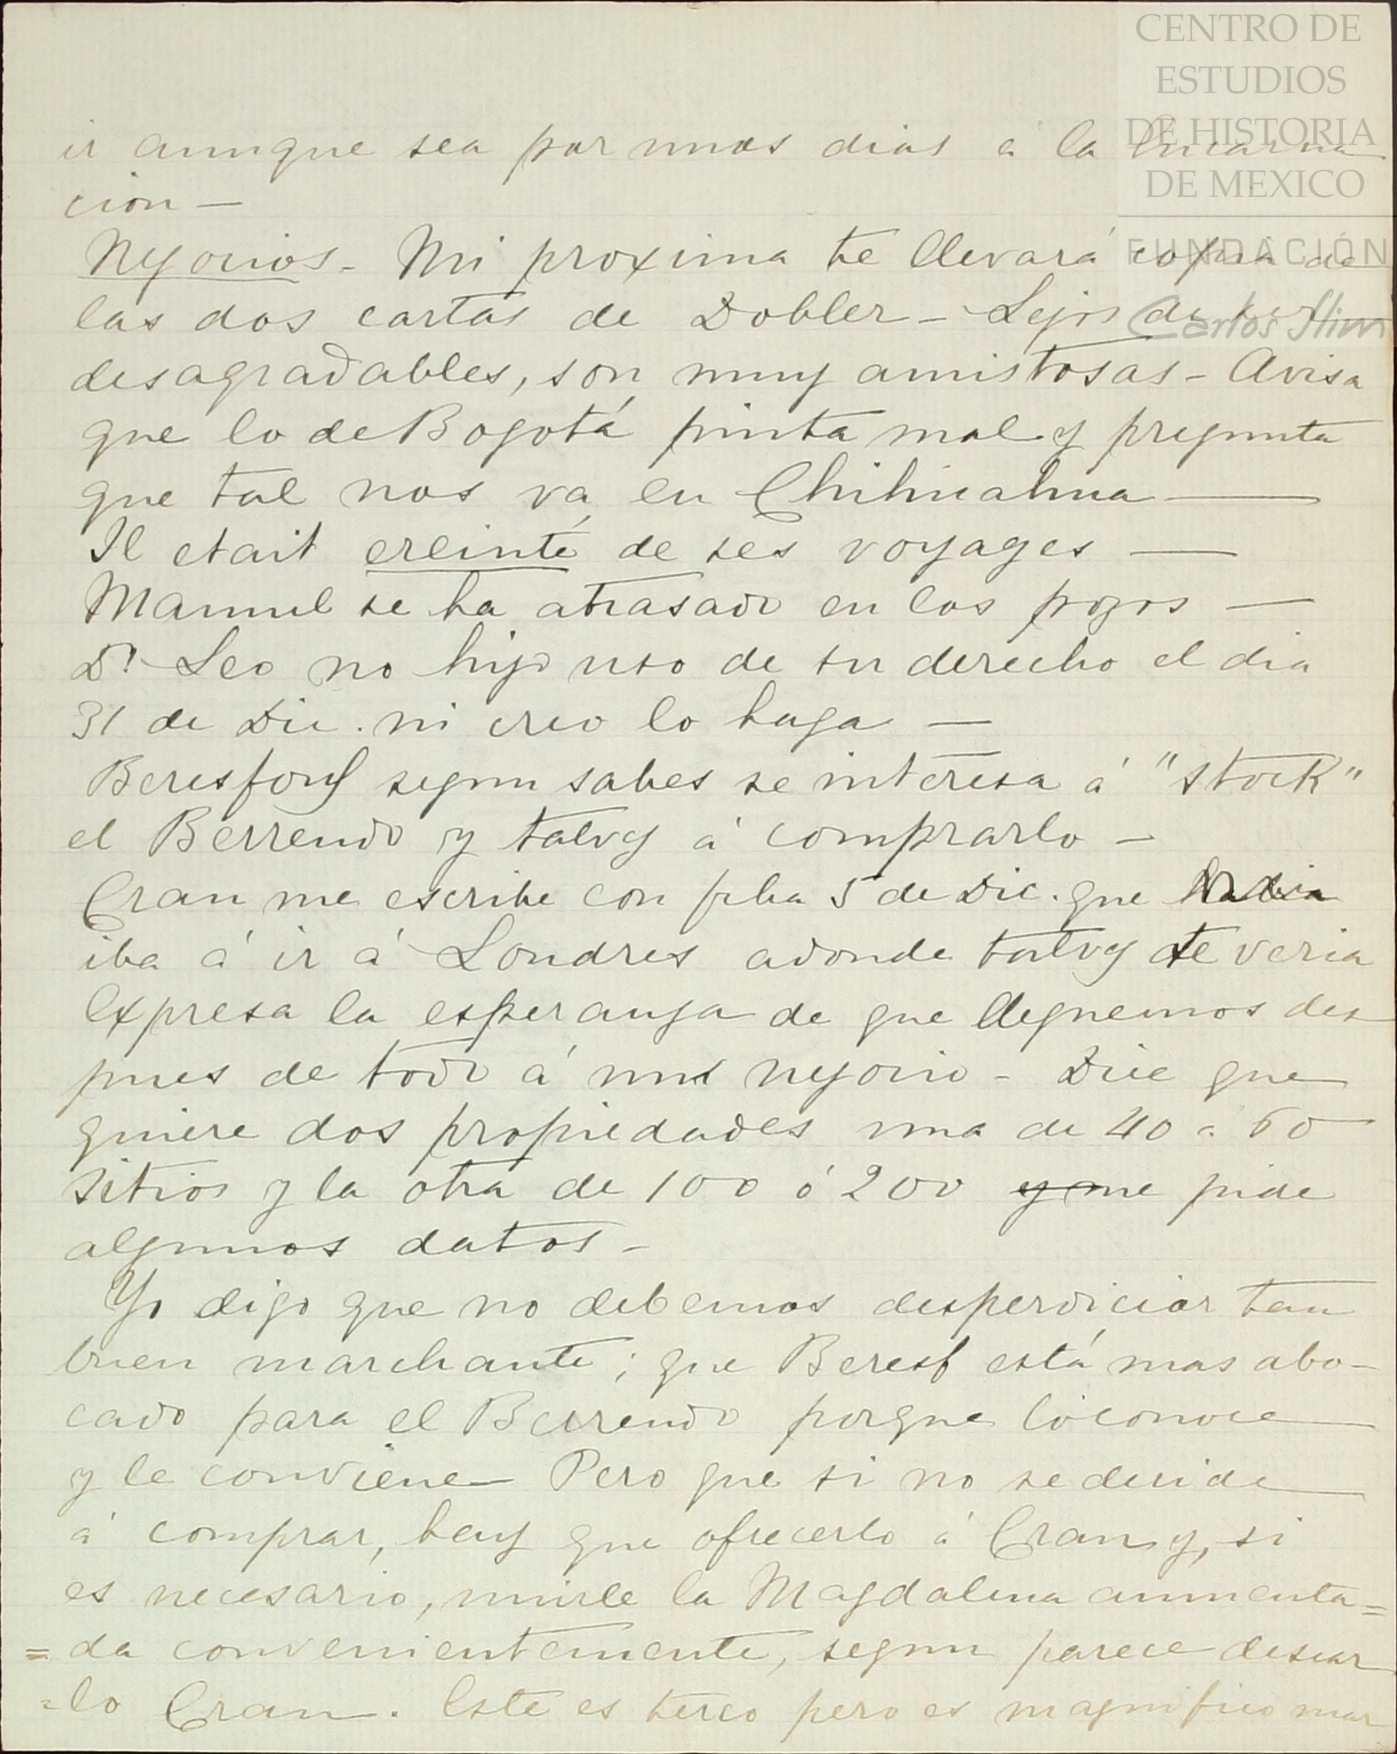 CENTRO DE
ESTUDIOS
DE HISTORIA
DE MEXICO
FUNDACIÓN
Carlos Slim
ir aunque sea por unos dias a la Encarna
cion —
Negocios - Mi proxima te llevará copia de
las dos cartas de Dobler - Lejos de ser
desagradables, son muy amistosas - Avisa
que lo de Bogotá pinta mal y pregunta
que tal nos va en Chihuahua —
Il etait ereinté de ses voyages —
Manuel se ha atrasado en los pozos —
Dr Leo no hizo uso de su derecho el dia
31 de Dic. ni creo lo haga —
Beresford segun sabes se interesa á "stock"
el Berrendo y talvez á comprarlo -
Cran me escribe con fcha 5 de Dic. que
iba á ir á Londres adonde talvez te veria
Expresa la esperanza de que lleguemos des
pues de todo á un negocio - Dice que
quiere dos propiedades una de 40 a 60
sitios y la otra de 100 ó 200 y me pide
algunos datos -
Yo digo que no debemos desperdiciar tan
buen marchante; que Beresf está mas abo-
cado para el Berrendo porque lo conoce
y le conviene - Pero que si no se decide
á comprar, hay que ofrecerlo á Cran y, si
es necesario, unirle la Magdalena aumenta=
=da convenientemente, segun parece desear
=lo Cran. Este es terco pero es magnifico mar